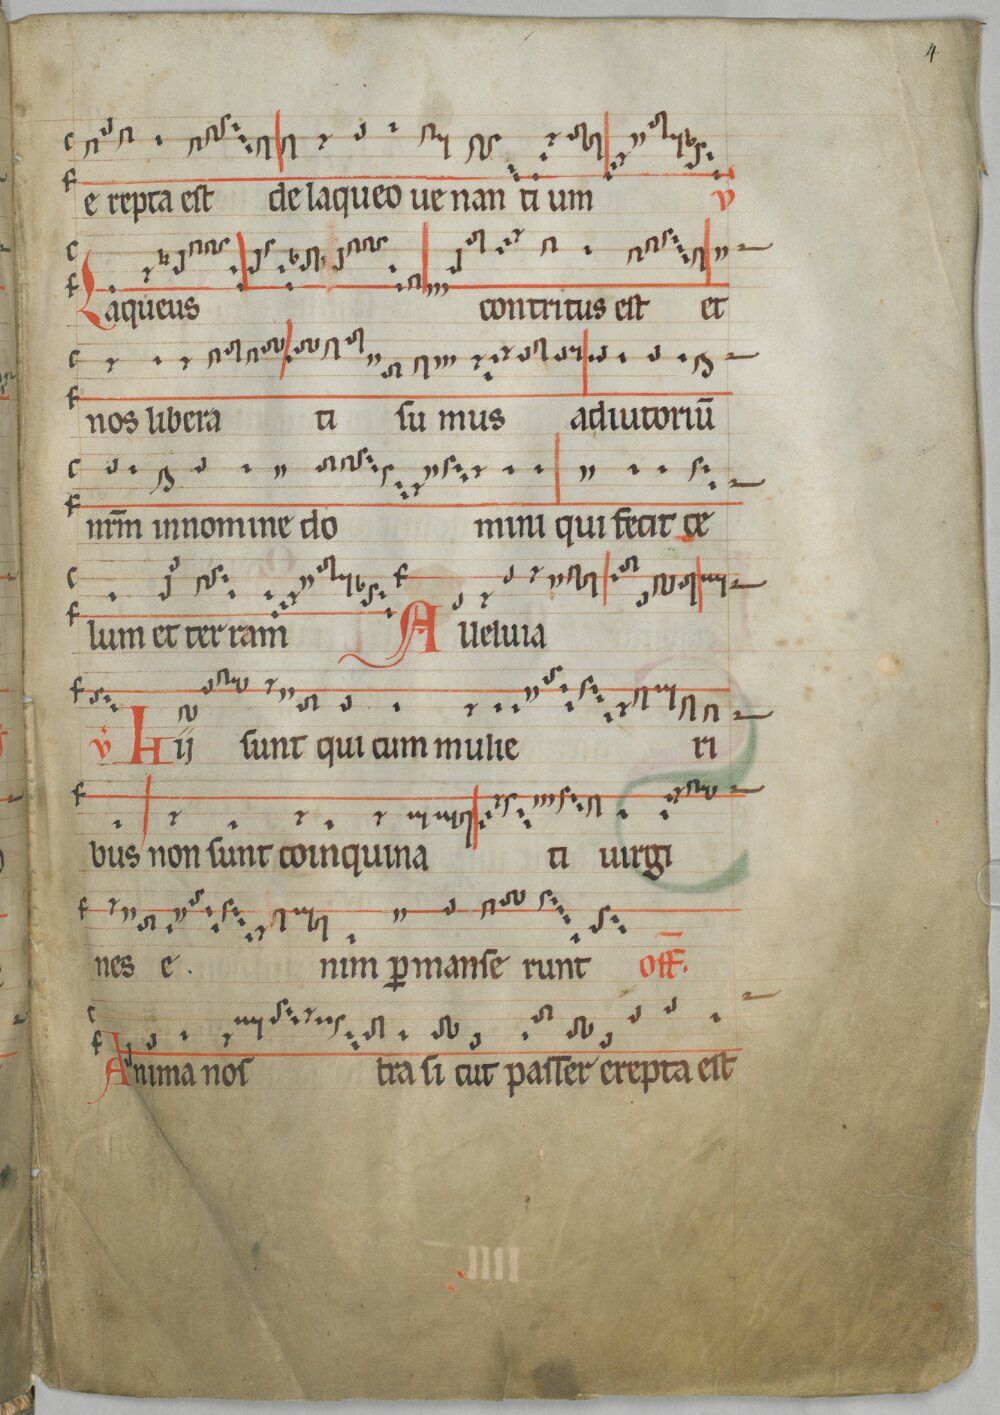 4
e repta est de laqueo ue nan ti um v
Laqueus contritus est et
nos libera ti su mus adiutoriū
nr̄m in nomine do mini qui fecit ce
lum et ter ram Alleluia
v Hij sunt qui cum mulie ri
bus non sunt coinquina ti uirgi
nes e . nim ꝑmanse runt off.
Anima nos tra si cut passer erepta est
IIII